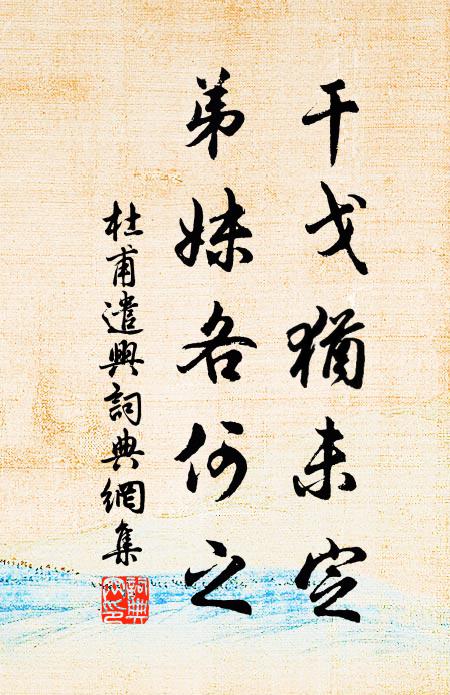 干戈猶未定
弟妹各何之
杜甫遣興詞典網集